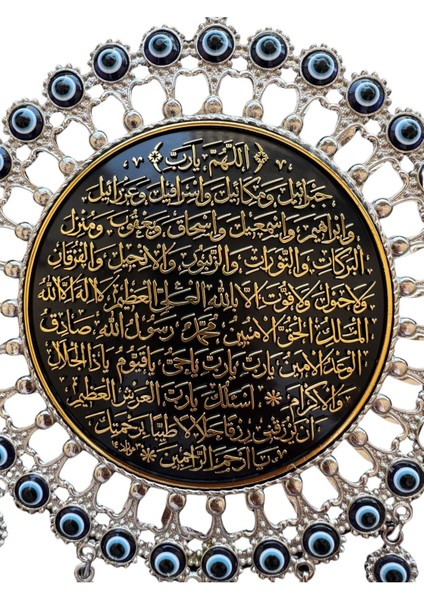 ﴿ اَللّٰهُمَّ يَارَبَّ ﴾
جَبْرَائِيلَ وَمِكَائِيلَ وَاِسْرَافِيلَ وَعِزْرَائِيلَ
وَاِبْرَاهِيمَ وَاِسْمٰعِيلَ وَاِسْحَاقَ وَيَعْقُوبَ وَمُنْزِلَ
الْبَرَكَاتِ وَالتَّوْرَاتِ وَالزَّبُورِ وَالْاِنْجِيلِ وَالْفُرْقَانِ
وَلَاحَوْلَ وَلَاقُوَّةَ اِلَّا بِاللّٰهِ الْعَلِيِّ الْعَظِيمِ لَا اِلٰهَ اِلَّا اللّٰهُ
الْمَلِكُ الْحَقُّ الْمُبِينُ مُحَمَّدٌ رَسُولُ اللّٰهِ صَادِقُ
الْوَعْدِ الْاَمِينُ يَارَبِّ يَارَبِّ يَارَبِّ يَاحَيُّ يَاقَيُّومُ يَاذَا الْجَلَالِ
وَالْاِكْرَامِ * اَسْئَلُكَ يَارَبَّ الْعَرْشِ الْعَظِيمِ
اَنْ تَرْزُقَنِي رِزْقًا حَلَالًا طَيِّبًا بِرَحْمَتِكَ
يَا اَرْحَمَ الرَّاحِمِينَ *